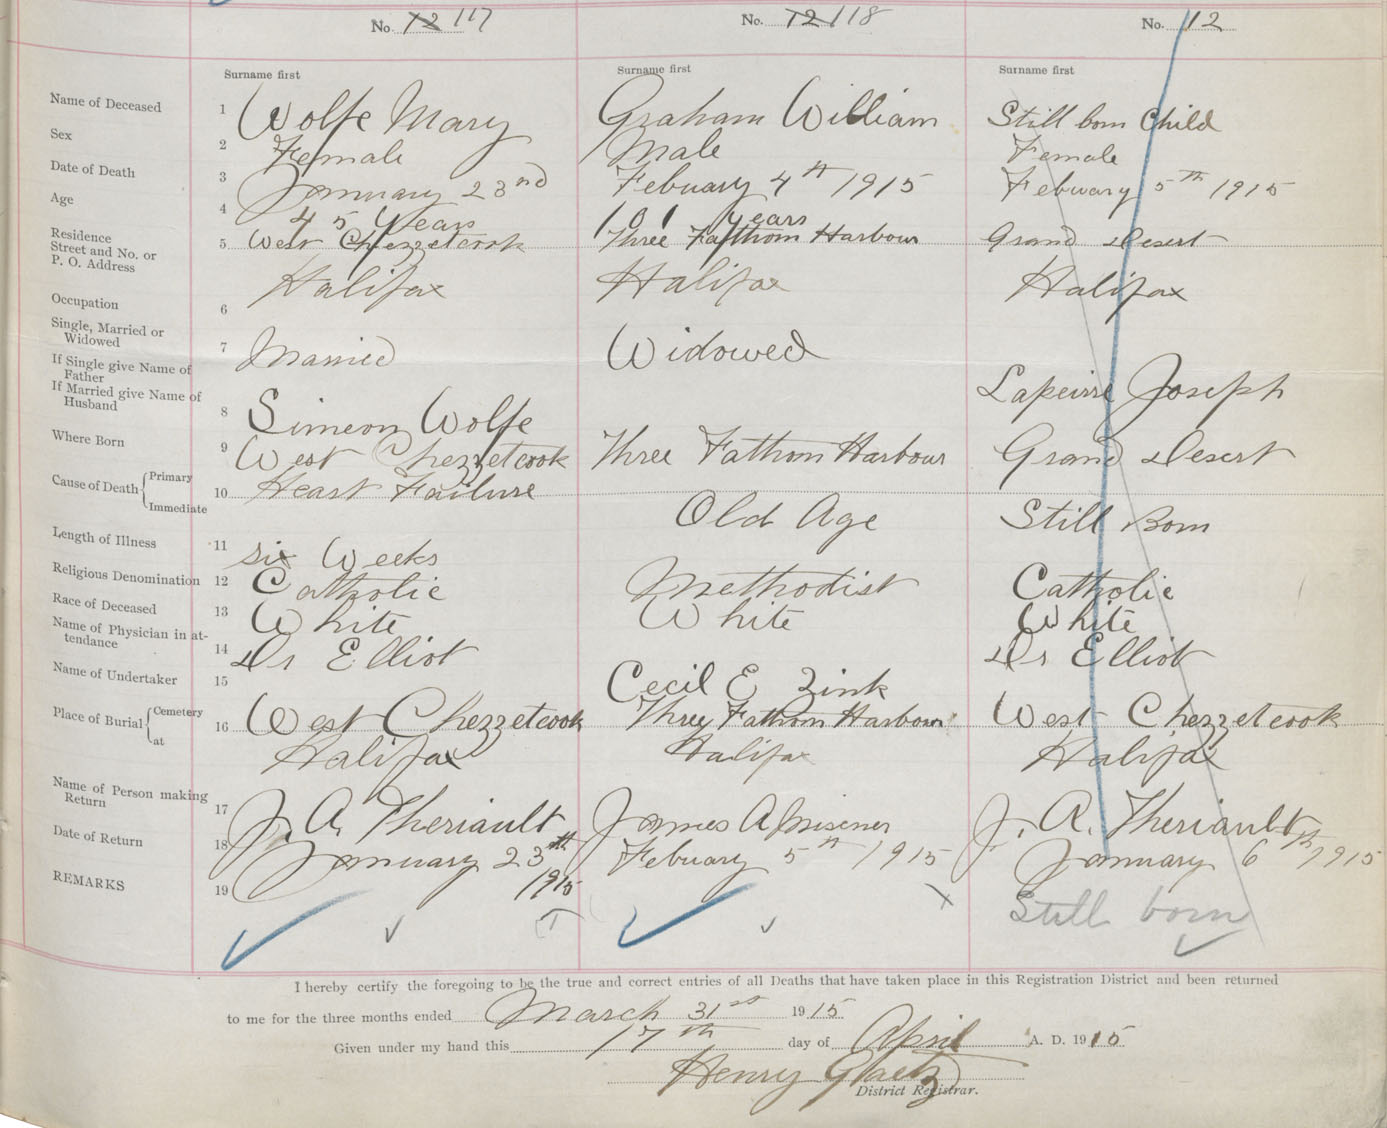 No. 12 117
No. 12 118
No. 12
Surname first
Surname first
Surname first
Name of Deceased 1 Wolfe Mary
Graham William
Still born Child
Sex 2 Female
Male
Female
Date of Death 3 January 23nd
Febuary 4th 1915
Febuary 5th 1915
Age 4 45 Years
101 years
Residence
Street and No. or
P. O. Address
5 West Chezzetcook
Three Fathom Harbour
Grand Desert
Halifax
Halifax
Halifax
Occupation 6
Single, Married or
Widowed
7 Married
Widowed
If Single give Name of
Father
If Married give Name of
Husband
8 Simeon Wolfe
Lapeirre Joseph
Where Born 9 West Chezzetcook
Three Fathom Harbour
Grand Desert
Cause of Death { Primary
Immediate
10 Heart Failure
Old Age
Still Born
Length of Illness 11 six Weeks
Religious Denomination 12 Catholic
Methodist
Catholic
Race of Deceased 13 White
White
White
Name of Physician in at-
tendance
14 Dr Elliot
Dr Elliot
Name of Undertaker 15
Cecil E Zink
Place of Burial { Cemetery
at
16 West Chezzetcook
Three Fathom Harbour
West Chezzetcook
Halifax
Halifax
Halifax
Name of Person making
Return
17 J. A. Theriault
James A Misener
J. A. Theriault
Date of Return 18 January 23th
1915
Febuary 5th 1915
January 6th 1915
REMARKS 19
Still born
I hereby certify the foregoing to be the true and correct entries of all Deaths that have taken place in this Registration District and been returned
to me for the three months ended March 31st 1915
Given under my hand this 17th day of April A. D. 1915
Henry Gaetz
District Registrar.